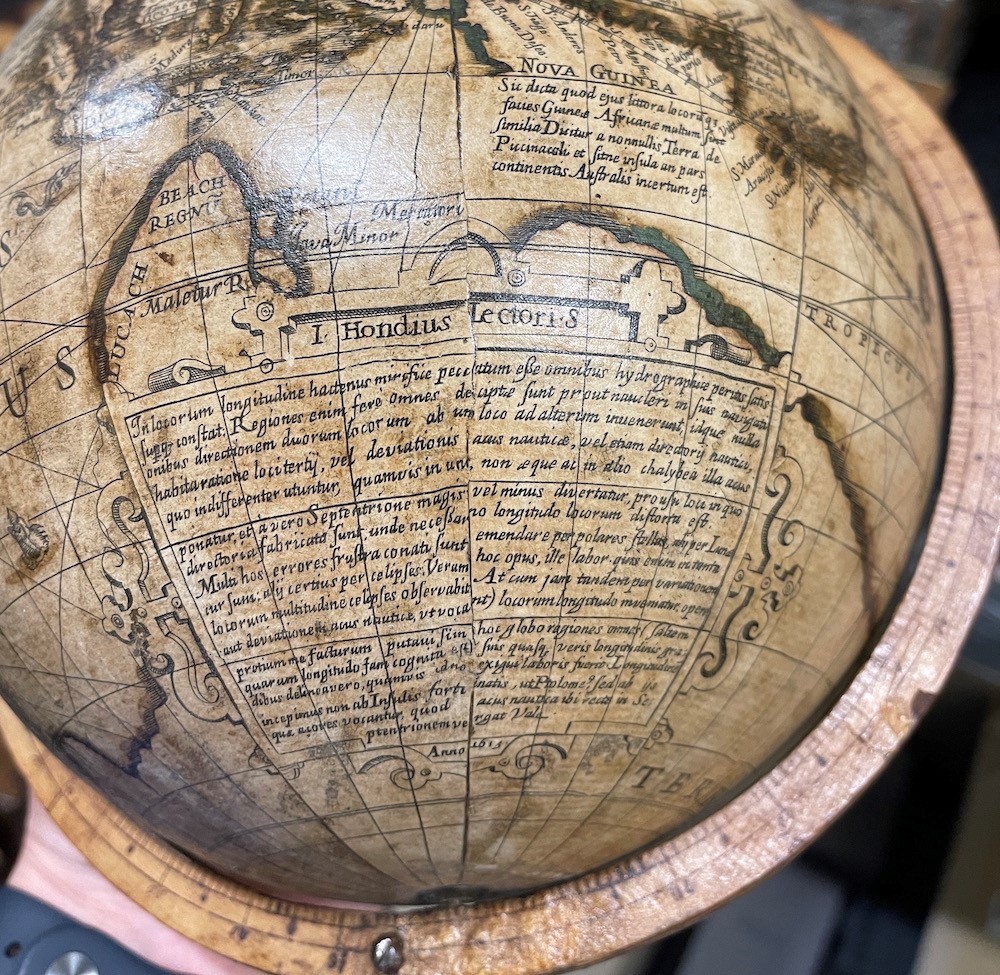 NOVA GUINEA
Sic dicta quod ejus littora locorumq3
facies Guineæ Africanæ multum sint
similia Dicitur a nonnullis Terra de
Piccinacoli et sitne insula an pars
continentis Australis incertum est.
Timor
BEACH
REGNŪ
Java Minor
LUCACH
Maletur R.
TROPICV
US
I. Hondius Lectori. S
In locorum longitudine hactenus mirifice peccatum esse omnibus hydrographiæ peritis satis
superq3 constat. Regiones enim fere omnes descriptæ sunt prout naucleri in suis navigati
onibus directionem duorum locorum ab uno loco ad alterum invenerunt, idque nulla
habita ratione loci tertij, vel deviationis acus nauticæ, vel etiam directorij nautici,
quo indifferenter utuntur, quamvis in uno, non æque ac in alio chalybea illa acus
ponatur, et a vero Septentrione magis vel minus divertatur, pro usu loci in quo
directoria fabricata sunt, unde necessario longitudo locorum distorta est.
Multi hos errores frustra conati sunt emendare per polares stellas, alij per Lunæ
cursum; alij certius per eclipses. Verum hoc opus, ille labor: quis enim in tanta
locorum multitudine eclipses observabit? At cum jam tandem per variationem
aut deviationem acus nauticæ, ut vocant) locorum longitudo inveniatur, operæ
pretium me facturum putavi, si in hoc globo regiones omnes, saltem
quarum longitudo jam cognita est) suis quasq3 veris longitudinis gra
dibus delineavero, quamvis id no exigui laboris fuerit Longitudinem
incepimus non ab Insulis fortu natis, ut Ptolome9 sed ab ijs
quæ açores vocantur, quod acus nautica ibi recta in Se
ptentrionem vergat Vale
Anno 1615
TER